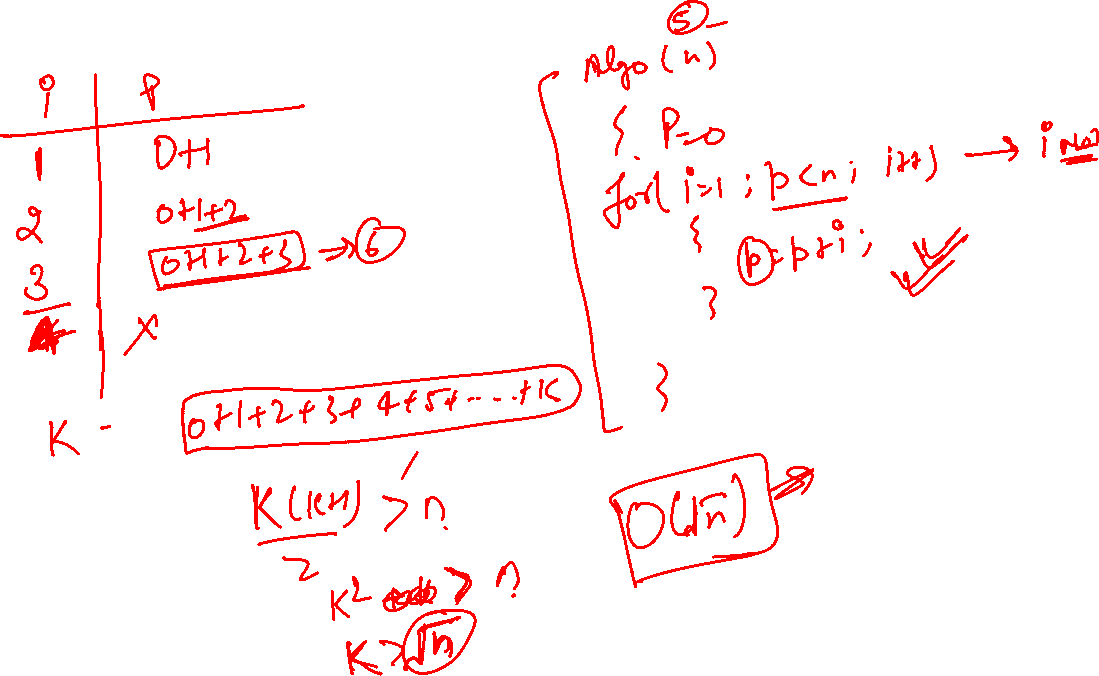 i P
1 0+1
2 0+1+2
3 0+1+2+3 → 6
4 X
K - 0+1+2+3+4+5+.....+K
K(K+1) > n
2
K² > n
K > √n
5
Algo (n)
{ P=0
for( i=1 ; p<n; i++) → i
{
p=p+i;
}
}
O(√n) →